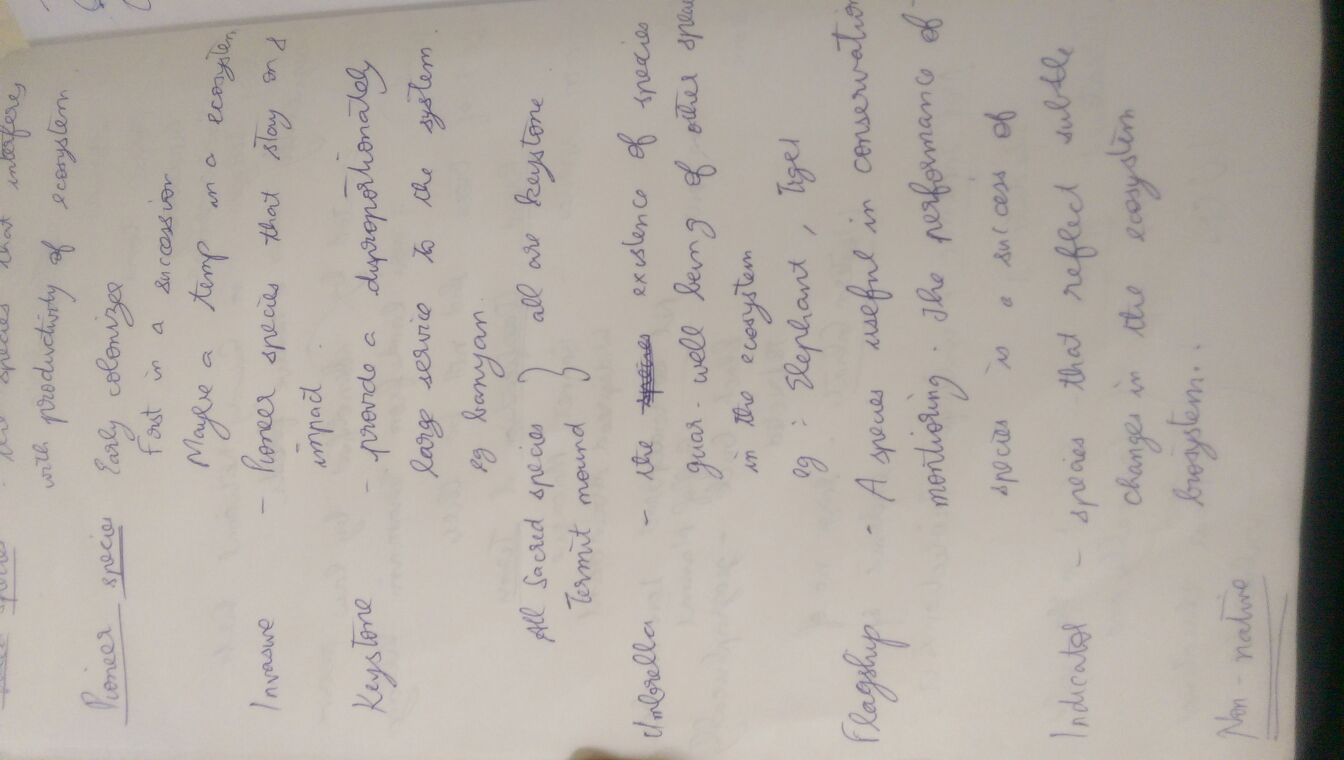 species - species that interferes
with productivity of ecosystem
Pioneer species Early colonizer
First in a succession
Maybe a temp in a ecosystem
Invasive - Pioneer species that stay on &
impact
Keystone - provide a disproportionately
large service to the system.
eg banyan
All Sacred species } all are keystone
Termit mound
Umbrella - the existence of species
guar - well being of other
in the ecosystem
eg : Elephant, Tiger
Flagship - A species useful in conservation
montioring. The performance of
species is a success of
Indicator - species that reflect subtle
changes in the ecosystem
biosystem.
Non-native